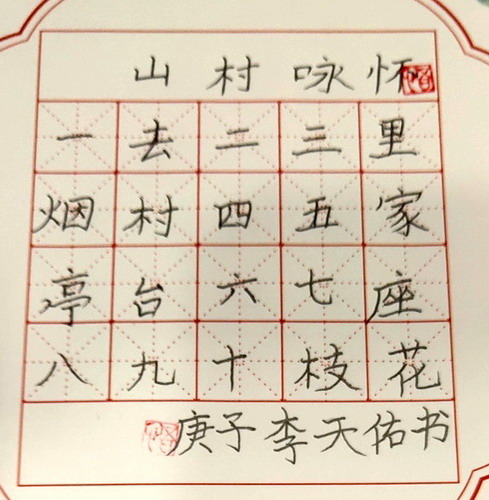 山村咏怀
一去二三里
烟村四五家
亭台六七座
八九十枝花
庚子李天佑书